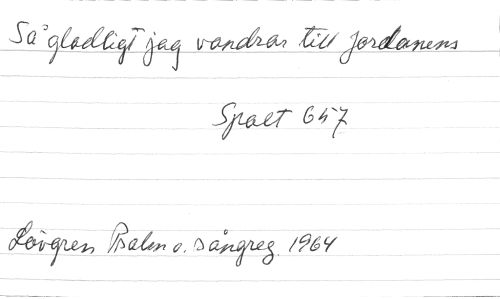 Så gladligt jag vandrar till Jordanens
Spalt 657
Lövgren Psalm o. sångreg. 1964